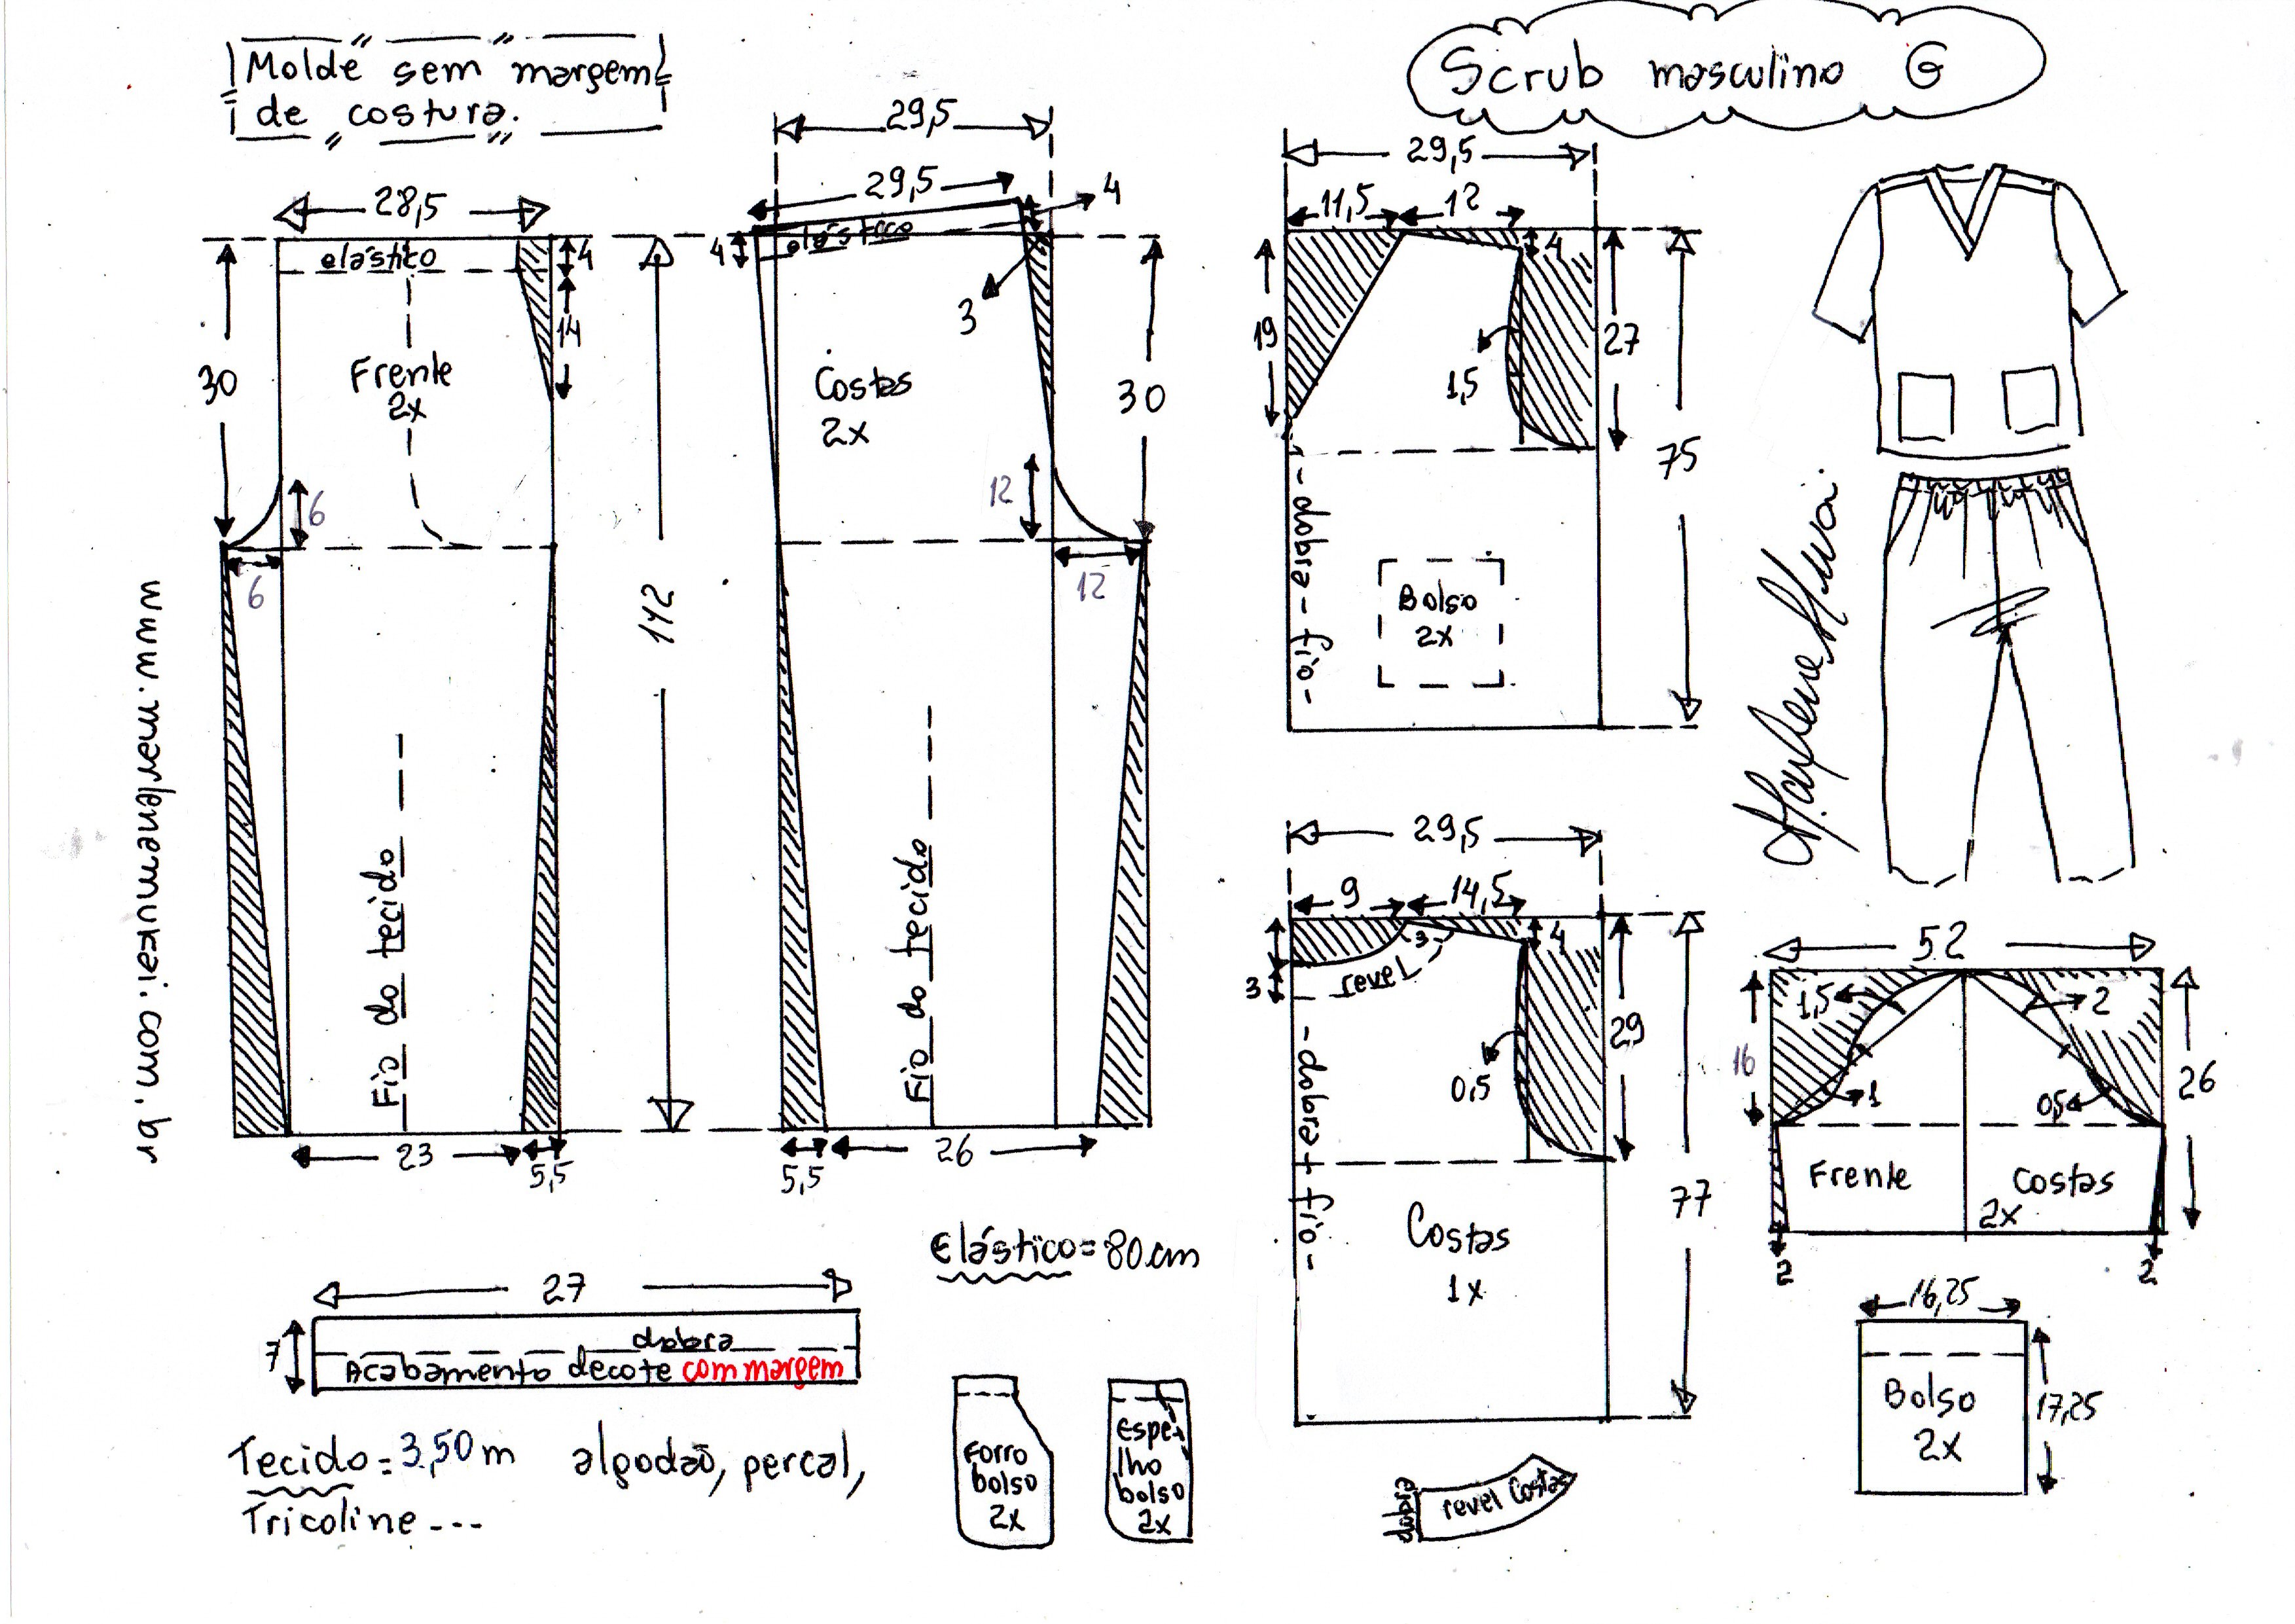 Molde sem margem
de costura.
Scrub masculino G
29,5
29,5
4
28,5
elástico
4
14
30
Frente
2x
6
6
Fio do tecido
23
5,5
112
4
elástico
3
Costas
2x
30
12
12
Fio do tecido
5,5
26
www.marlenemukai.com.br
29,5
11,5
12
4
19
27
1,5
75
dobra - fio
Bolso
2x
Marlene Mukai
29,5
9
14,5
4
3
3
revel
29
0,5
77
dobra + fio
Costas
1x
52
1,5
2
16
26
1
0,5
Frente
Costas
2x
2
2
Elástico = 80 cm
27
7
dobra
Acabamento decote com margem
Tecido = 3,50 m algodão, percal,
Tricoline ---
Forro
bolso
2x
Espe-
lho
bolso
2x
dobra
revel Costas
16,25
17,25
Bolso
2x